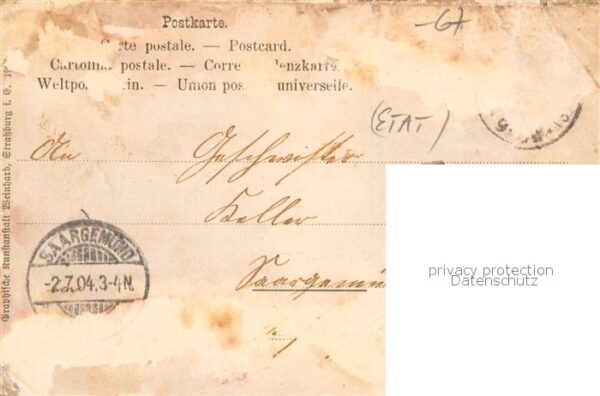 Postkarte.
te postale. — Postcard.
Cartolina postale. — Corre denzkarte.
Weltpo in. — Union pos universelle.
-67
(ETAT)
An Geschwister
Keller
Saargemü
SAARGEMÜND
-2.7.04.3-4N.
Graphische Kunstanstalt Weinhard, Straßburg i. E.
privacy protection
Datenschutz